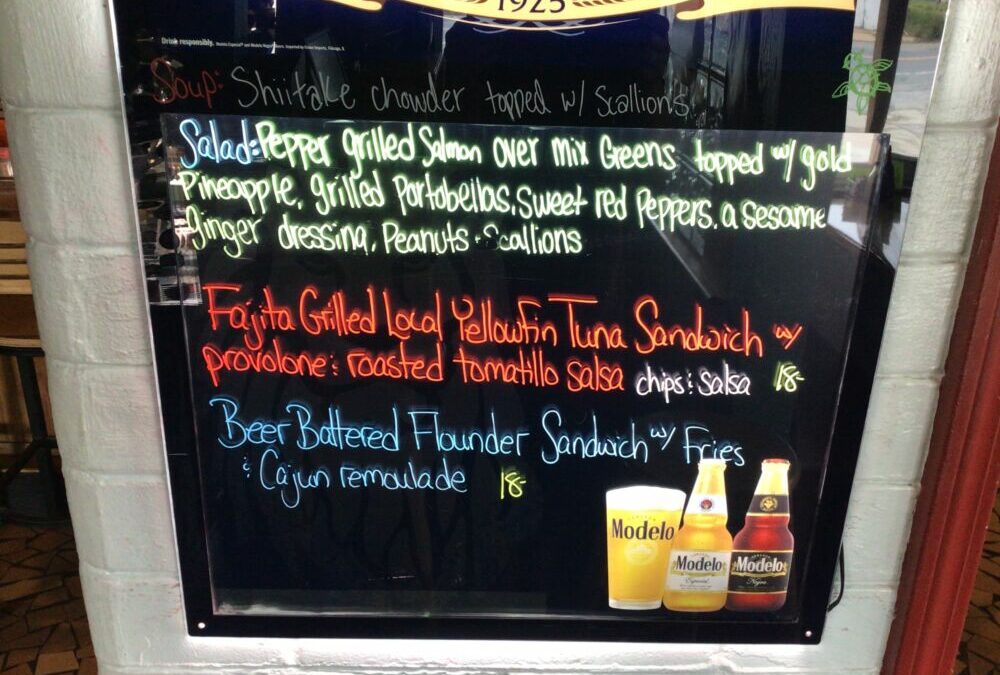 1925
Drink responsibly.
Soup: Shiitake chowder topped w/ Scallions
Salad: Pepper grilled Salmon over mix Greens topped w/ gold
Pineapple, grilled Portobellas, Sweet red Peppers, a sesame
Ginger dressing, Peanuts & Scallions
Fajita Grilled Local Yellowfin Tuna Sandwich w/
provolone & roasted tomatillo salsa chips & salsa 18-
Beer Battered Flounder Sandwich w/ Fries
& Cajun remoulade 18-
Modelo
Modelo
Especial
Modelo
Negra